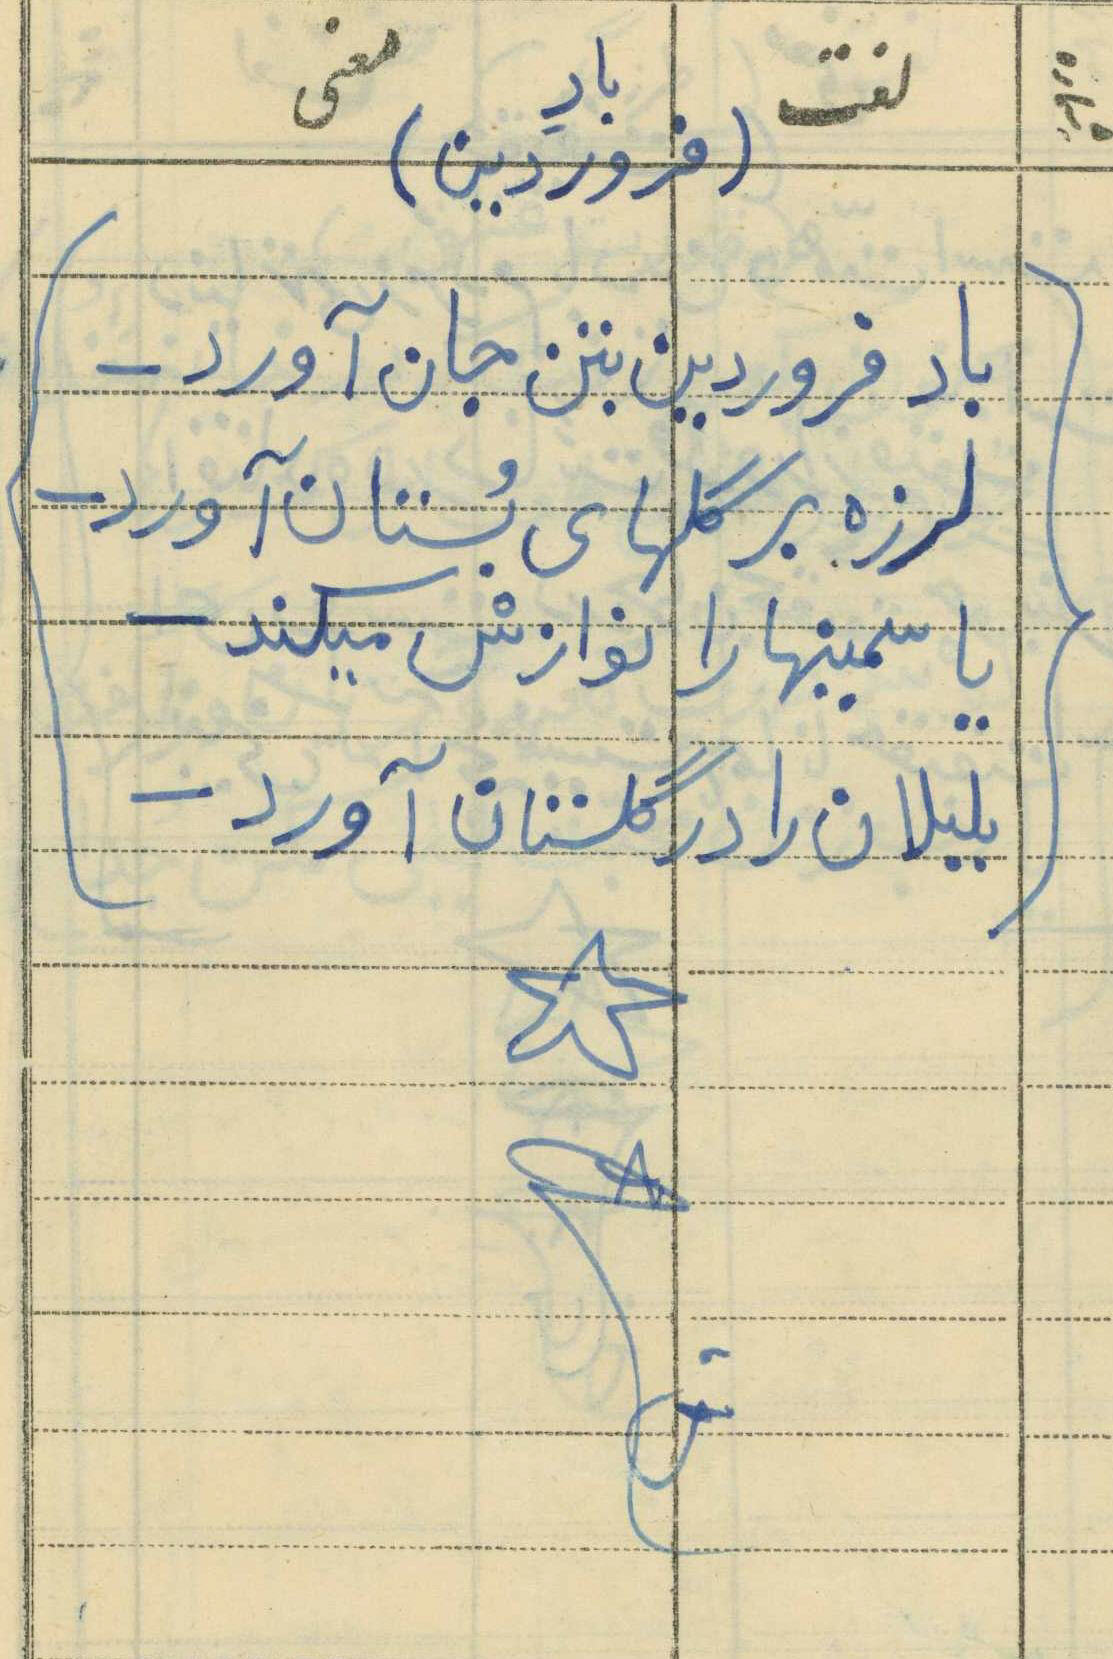 شماره لغت معنی
بادِ
(فروردین)
باد فروردین بتن جان آورد –
لرزه بر گلهای بُستان آورد –
یاسمینها را نوازش میکند –
بلبلان را در گلستان آورد –